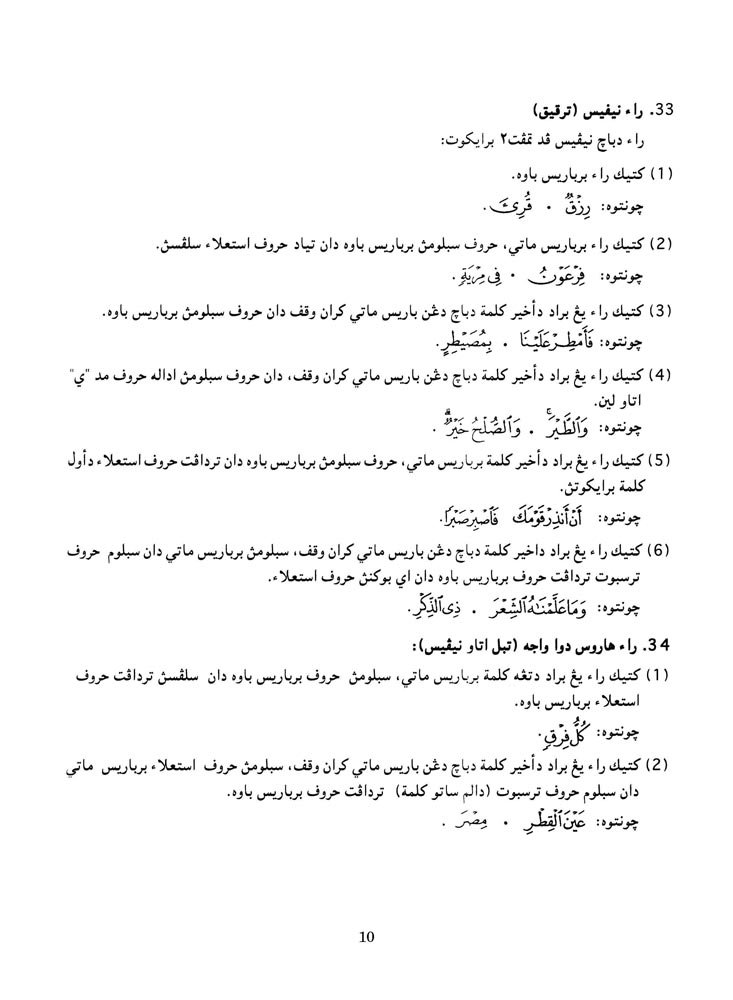 33. راء نيفيس (ترقيق)
راء دباچ نيڤيس ڤد تمڤت٢ برايكوت:
(1) كتيك راء برباريس باوه.
چونتوه: رِزْقٌ . قُرِئَ .
(2) كتيك راء برباريس ماتي، حروف سبلومڽ برباريس باوه دان تياد حروف استعلاء سلڤسڽ.
چونتوه: فِرْعَوْنُ . فِى مِرْيَةٍ .
(3) كتيك راء يڠ براد دأخير كلمة دباچ دڠن باريس ماتي كران وقف دان حروف سبلومڽ برباريس باوه.
چونتوه: فَأَمْطِرْ عَلَيْنَا . بِمُصَيْطِرٍ.
(4) كتيك راء يڠ براد دأخير كلمة دباچ دڠن باريس ماتي كران وقف، دان حروف سبلومڽ اداله حروف مد "ي"
اتاو لين.
چونتوه: وَٱلطَّيْرَ ۚ . وَٱلصُّلْحُ خَيْرٌ ۗ .
(5) كتيك راء يڠ براد دأخير كلمة برباريس ماتي، حروف سبلومڽ برباريس باوه دان ترداڤت حروف استعلاء دأول
كلمة برايكوتڽ.
چونتوه: أَنْ أَنذِرْ قَوْمَكَ فَٱصْبِرْ صَبْرًا.
(6) كتيك راء يڠ براد داخير كلمة دباچ دڠن باريس ماتي كران وقف، سبلومڽ برباريس ماتي دان سبلوم حروف
ترسبوت ترداڤت حروف برباريس باوه دان اي بوكنڽ حروف استعلاء.
چونتوه: وَمَا عَلَّمْنَٰهُ ٱلشِّعْرَ . ذِى ٱلذِّكْرِ.
34. راء هاروس دوا واجه (تبل اتاو نيڤيس):
(1) كتيك راء يڠ براد دتڠه كلمة برباريس ماتي، سبلومڽ حروف برباريس باوه دان سلڤسڽ ترداڤت حروف
استعلاء برباريس باوه.
چونتوه: كُلُّ فِرْقٍ.
(2) كتيك راء يڠ براد دأخير كلمة دباچ دڠن باريس ماتي كران وقف، سبلومڽ حروف استعلاء برباريس ماتي
دان سبلوم حروف ترسبوت (دالم ساتو كلمة) ترداڤت حروف برباريس باوه.
چونتوه: عَيْنَ ٱلْقِطْرِ . مِصْرَ .
10